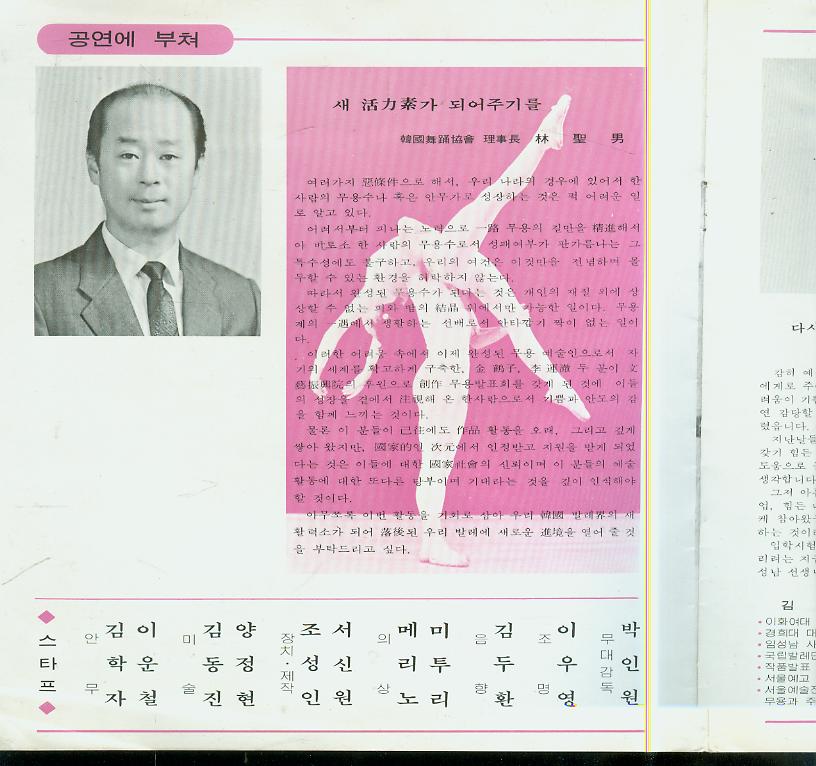 공연에 부쳐
새 活力素가 되어주기를
韓國舞踊協會 理事長 林 聖 男
여러가지 惡條件으로 해서, 우리 나라의 경우에 있어서 한
사람의 무용수나 혹은 안무가로 성장하는 것은 퍽 어려운 일
로 알고 있다.
어려서부터 피나는 노력으로 一路 무용의 길만을 精進해서
야 비로소 한 사람의 무용수로서 성패여부가 판가름나는 그
특수성에도 불구하고, 우리의 여건은 이것만을 전념하며 몰
두할 수 있는 환경을 허락하지 않는다.
따라서 완성된 무용수가 된다는 것은 개인의 재질 위에 상
상할 수 없는 피와 땀의 結晶 위에서만 가능한 일이다. 무용
계의 一遇에서 생활하는 선배로서 안타깝기 짝이 없는 일이
다.
이러한 어려움 속에서 이제 완성된 무용 예술인으로서 자
기의 세계를 확고하게 구축한, 金 鶴子, 李 運澈 두 분이 文
藝振興院의 후원으로 創作 무용발표회를 갖게 된 것에 이들
의 성장을 곁에서 注視해 온 한사람으로서 기쁨과 안도의 감
을 함께 느끼는 것이다.
물론 이 분들이 已往에도 作品 활동을 오래, 그리고 깊게
쌓아 왔지만, 國家的인 次元에서 인정받고 지원을 받게 되었
다는 것은 이들에 대한 國家社會의 신뢰이며 이 분들의 예술
활동에 대한 또다른 당부이며 기대라는 것을 깊이 인식해야
할 것이다.
아무쪼록 이번 활동을 계기로 삼아 우리 韓國 발레界의 새
활력소가 되어 落後된 우리 발레에 새로운 進境을 열어 줄 것
을 부탁드리고 싶다.
스타프
안무 김학자 이운철
미술 김동진 양정현
장치·제작 조성인 서신원
의상 메리노 미투리
음향 김두환
조명 이우영
무대감독 박인원
다시
감히 예
에게로 주
려움이 기
연 감당할
렸읍니다.
지난날들
갖기 힘든
도움으로
생각합니다
그저 아
업, 힘든
께 참아왔
하는 것이
입학시험
리려는 지
성남 선생
김
• 이화여대
• 경희대 대
• 임성남 사
• 국립발레단
• 작품발표
• 서울예고
• 서울예술전
무용과 주